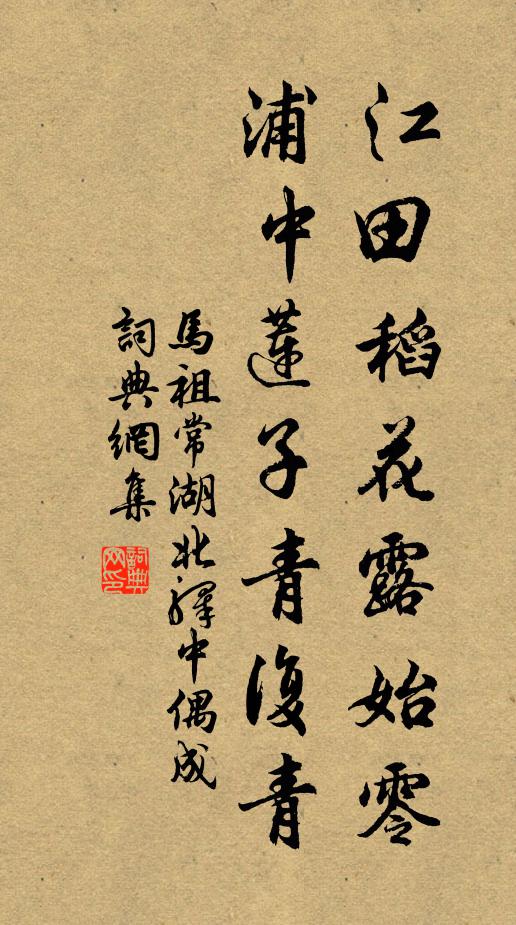 江田稻花露始零
浦中蓮子青復青
馬祖常湖北驛中偶成
詞典網集
詞典網印